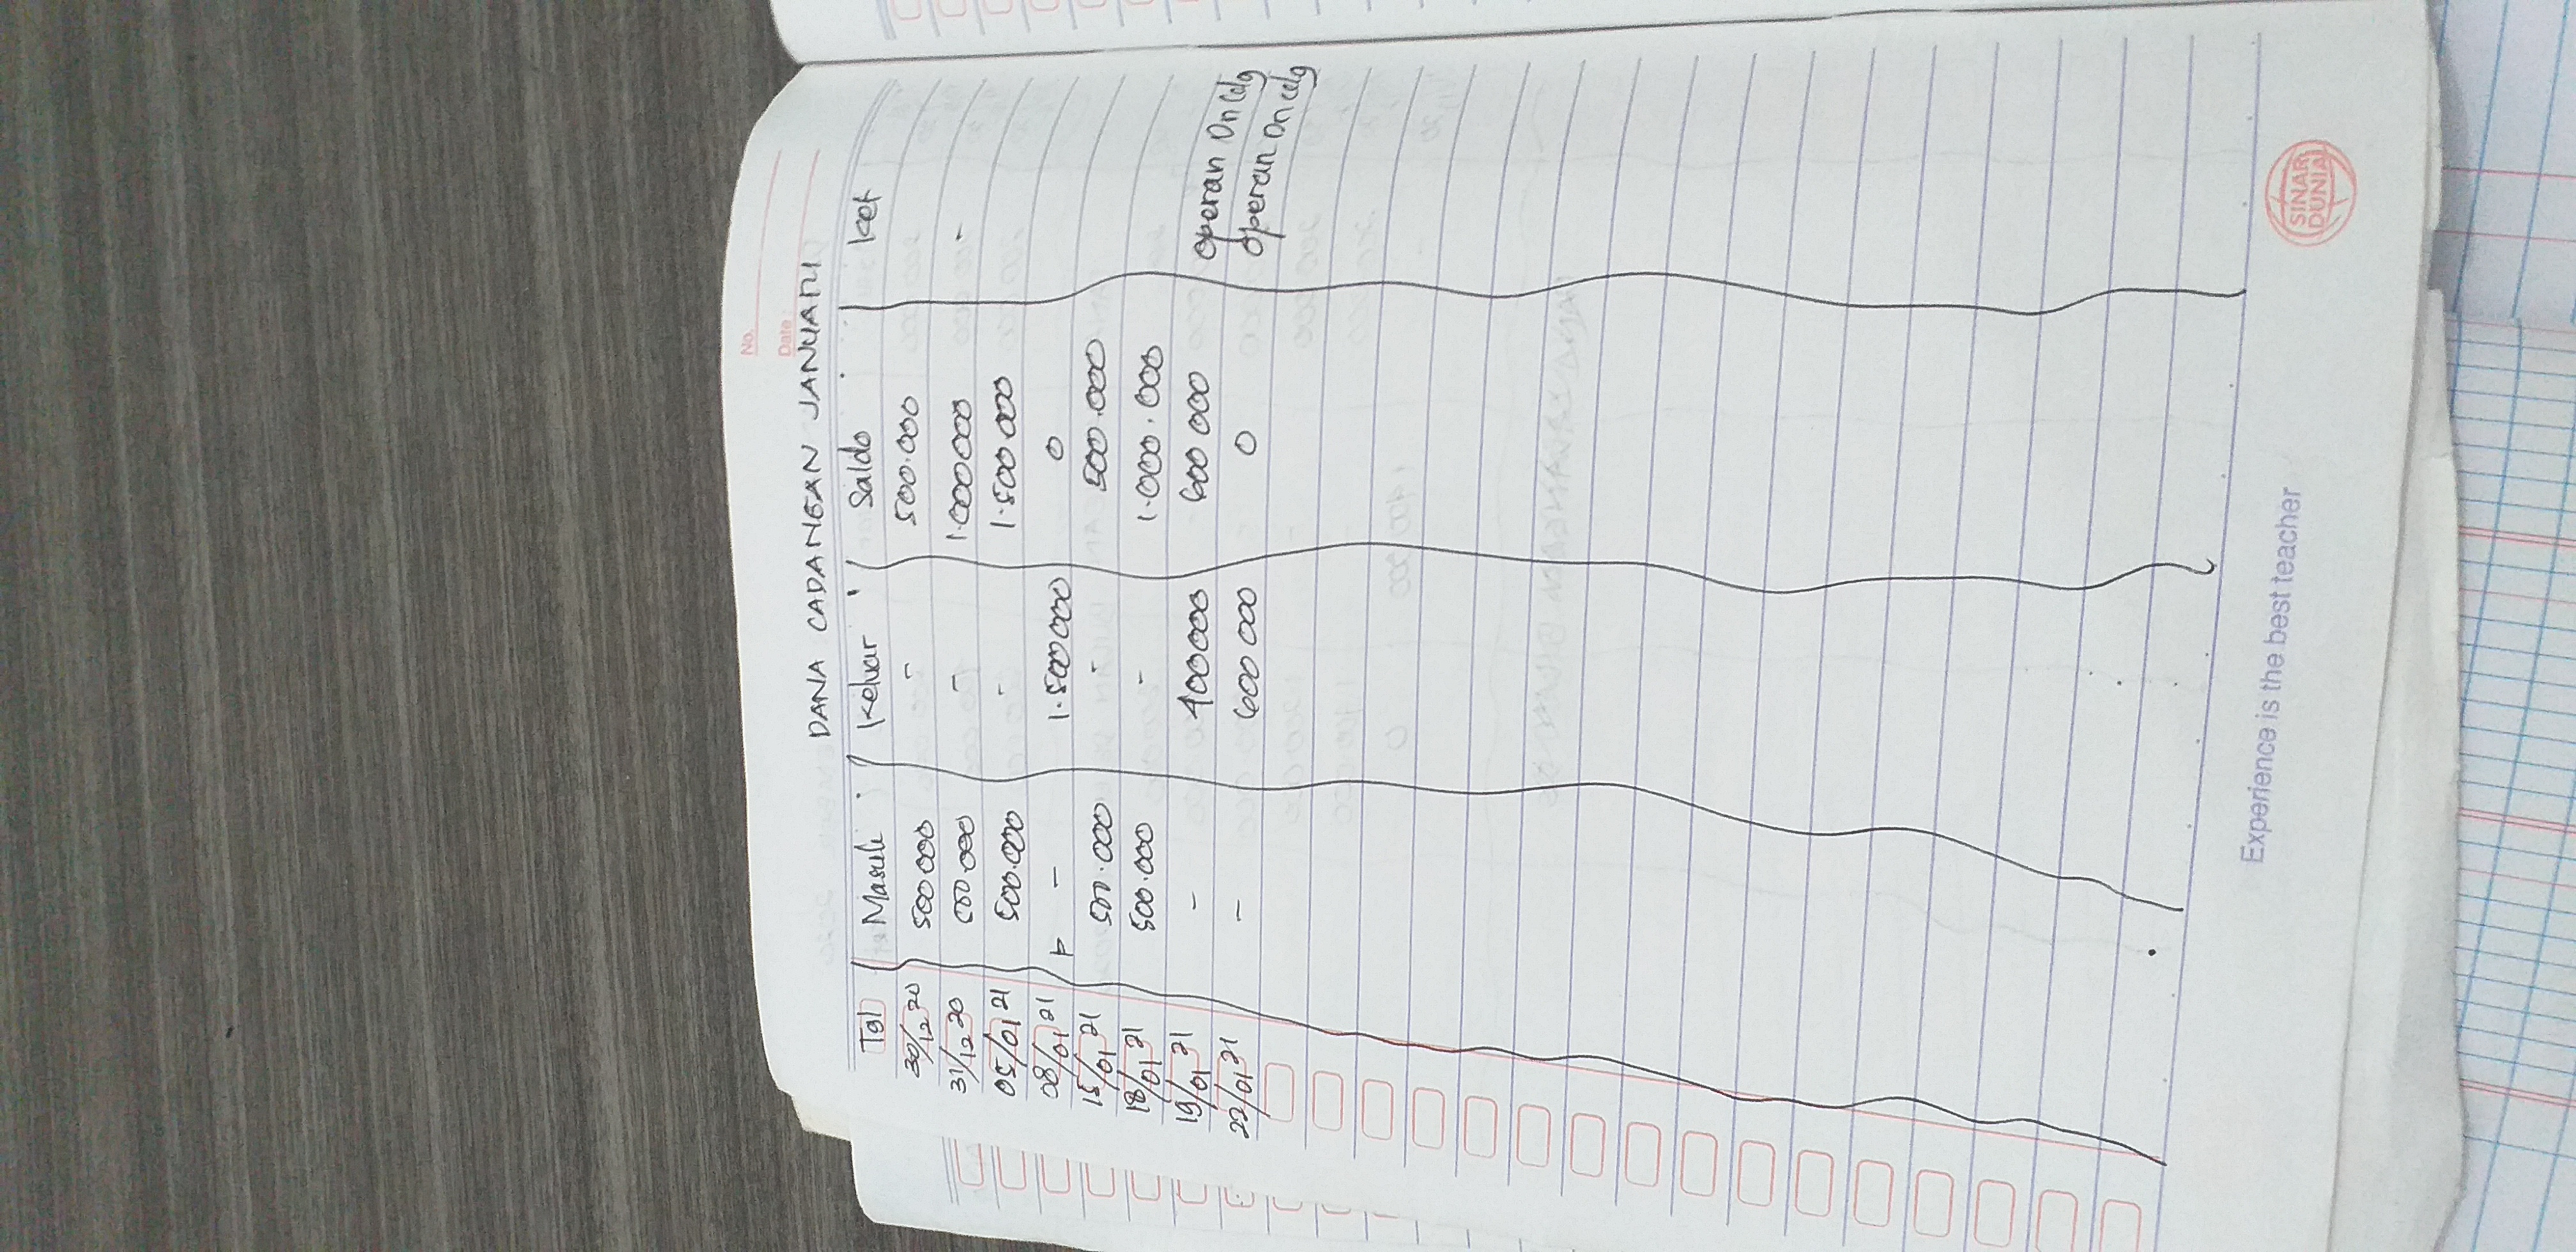 No.
Date :
DANA CADANGAN JANUARI
Tgl Masuk Keluar Saldo Ket
30/12 20 500 000 - 500.000
31/12 20 500.000 - 1.000000 -
05/01 21 500.000 - 1.500 000
08/01 21 - 1.500 000 0
15/01 21 500.000 - 500.000
18/01 21 500.000 - 1.000.000
19/01 21 - 400000 600 000 operan On
22/01 21 - 600 000 0 operan On
Experience is the best teacher
SINAR
DUNIA